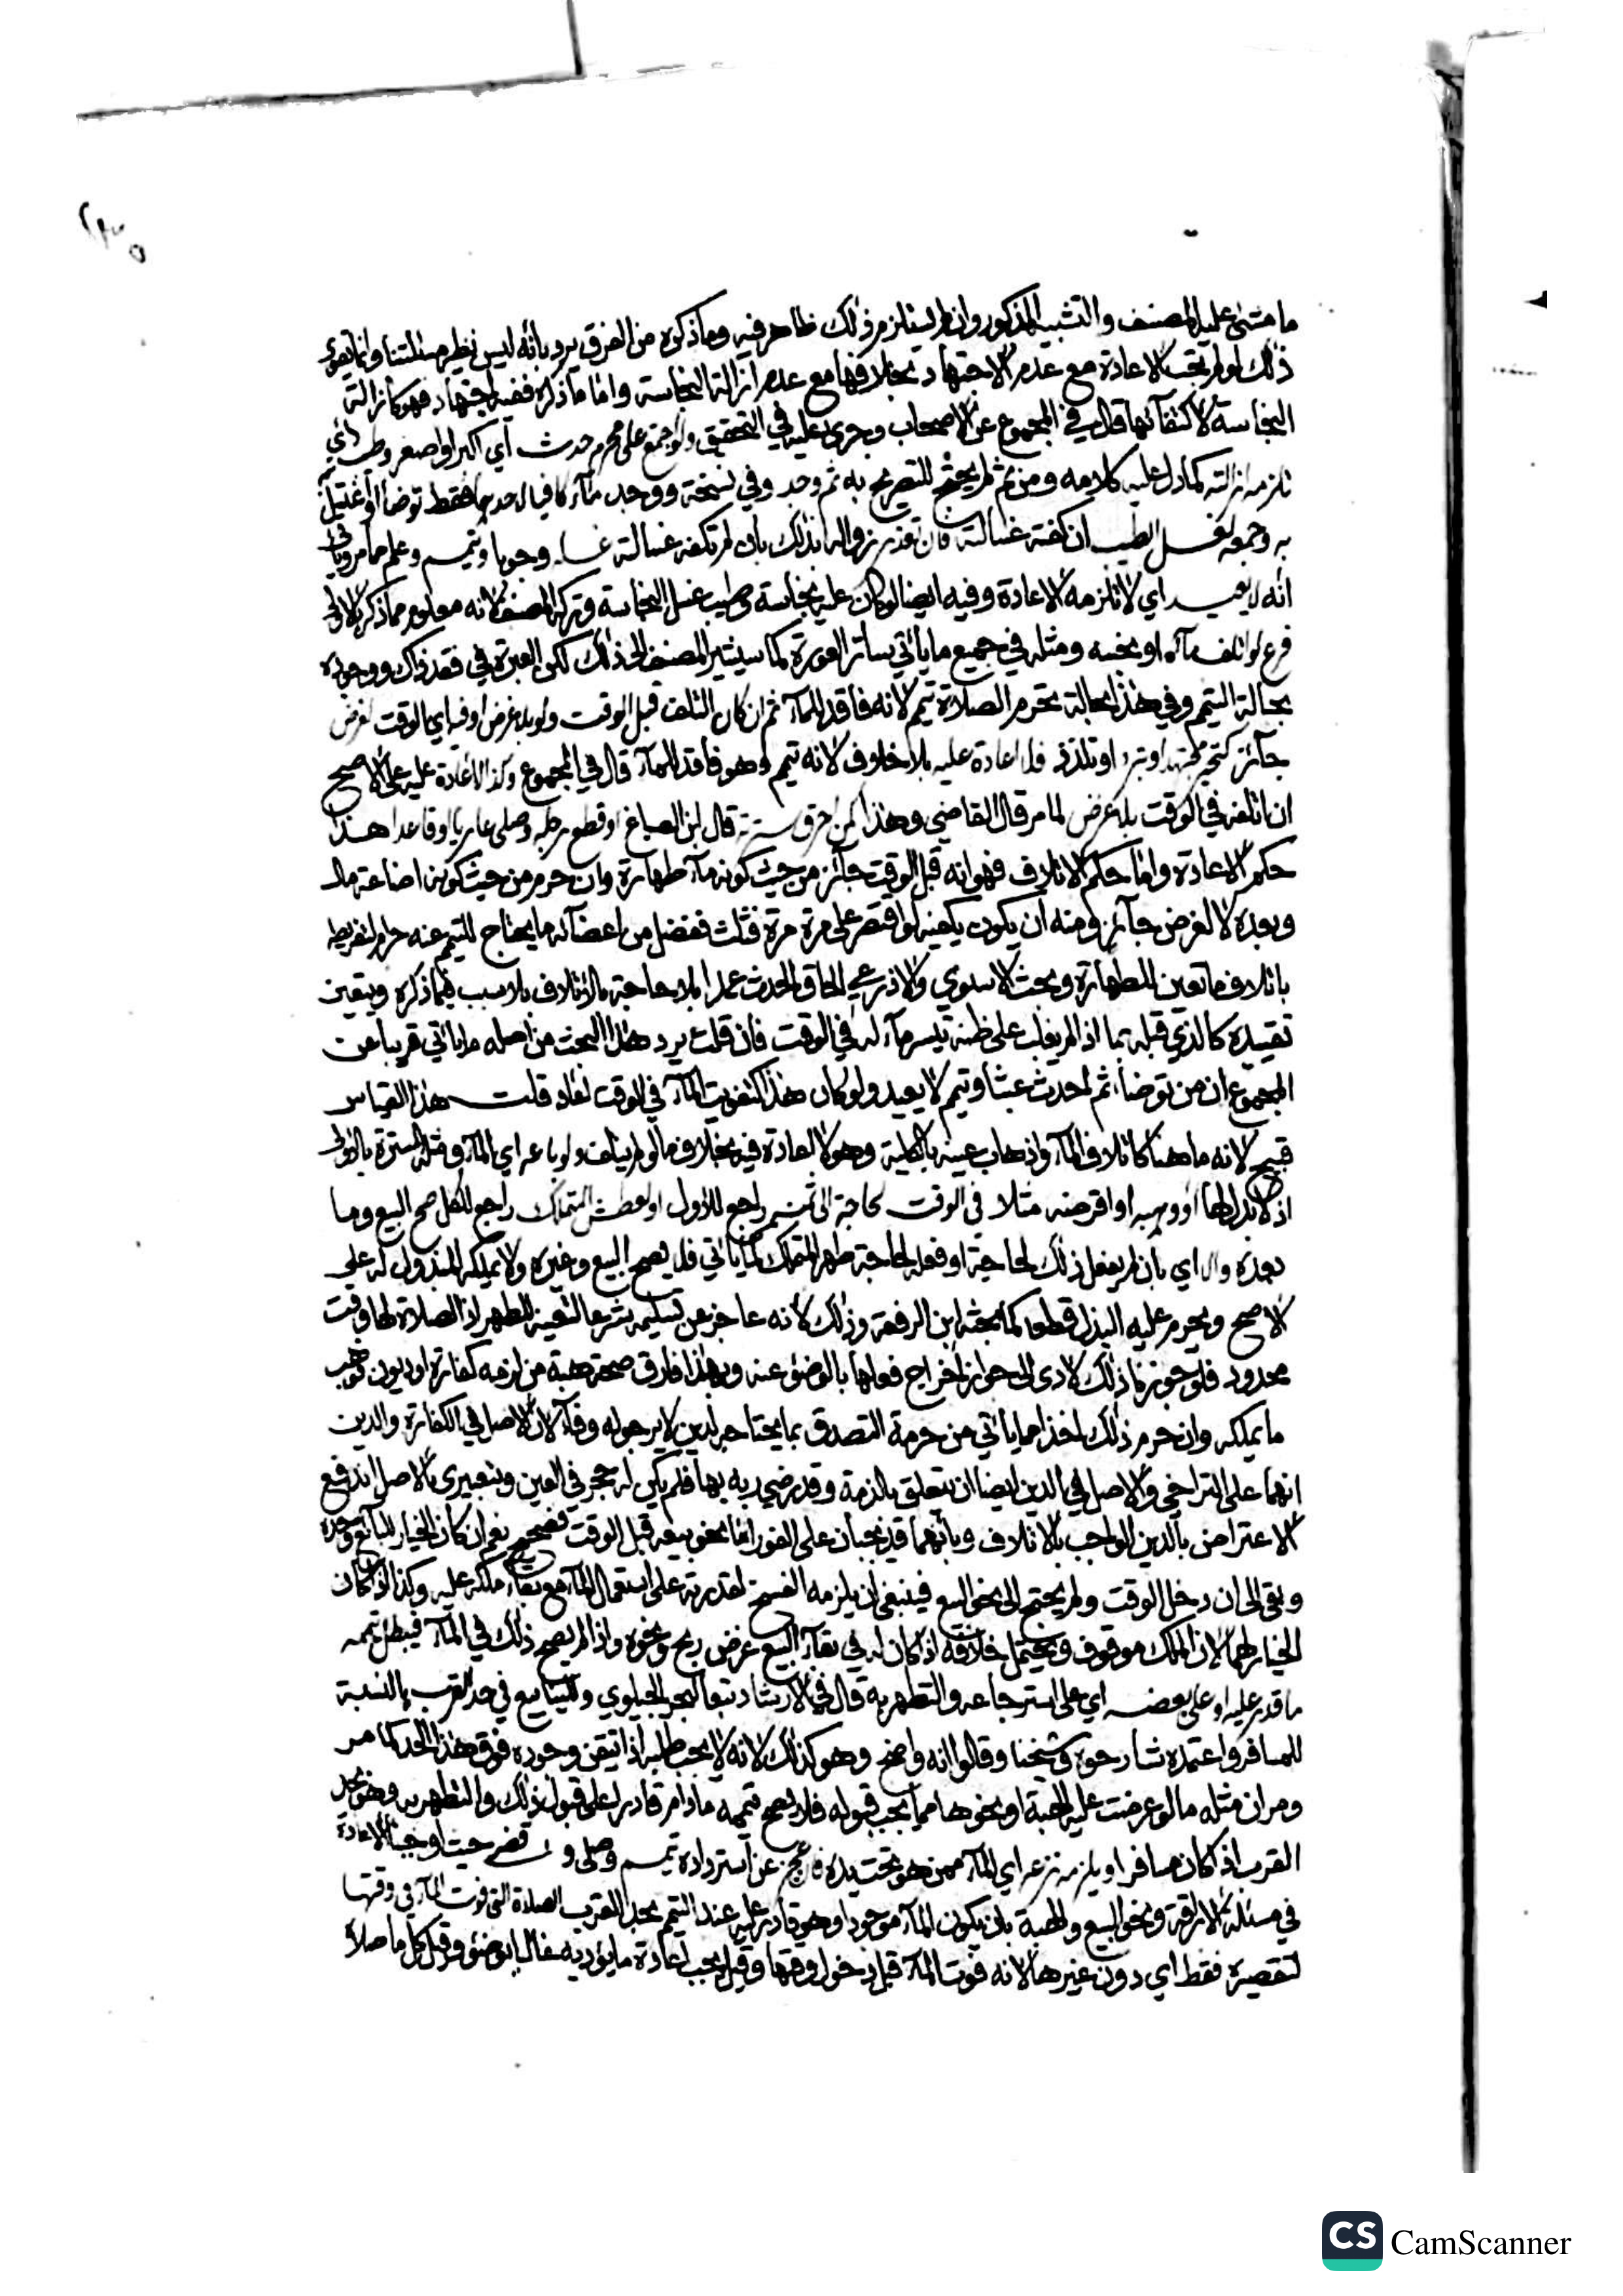 ما مشى عليه المصنف والتشبيه المذكور وان لم يستلزم ذلك ظاهر فيه وما ذكره من الفرق يرد بانه ليس نظير مسئلتنا وانما
ذلك لو لم تجب الاعادة مع عدم الاجتهاد بخلافها مع عدم ازالة النجاسة واما ما ذكره ففيه اجتهاد فهو كازالة
النجاسة لاكتفائها قال في المجموع عن الاصحاب وجرى عليه في التحقيق ولو اجتمع على محرم حدث اي اكبر او اصغر وطيب اي
تلزمه ازالته كما دل عليه كلامه ومن ثم لم يحتج للتصريح به ثم وجد وفي نسخة ووجد ماء كافيا لاحدهما فقط توضأ او اغتسل
به وجمعه لغسل الطيب ان كفته غسالته فان تعذر زواله بذلك بان لم تكفه غسالته غسله وجوبا وتيمم وعلم مما مر وياتي
انه لا يعيد اي لا تلزمه الاعادة وفيه ايضا لو كان عليه نجاسة وطيب غسل النجاسة وتركه المصنف لانه معلوم مما ذكر بالاولى
فرع لو اتلف ماء او نجسه ومثله في جميع ما ياتي ساتر العورة كما سيشير المصنف الى ذلك لكن العبرة في فقد ذاك ووجوده
بحالة التيمم وفي هذا بحالة تحرم الصلاة تيمم لانه فاقد للماء ثم ان كان التلف قبل الوقت ولو بلا غرض او فيه اي الوقت لغرض
جائز كتحير مجتهد او تبرد او تلذذ فلا اعادة عليه بلا خلاف لانه تيمم وهو فاقد للماء قال في المجموع وكذا لا اعادة عليه على الاصح
ان اتلفه في الوقت بلا غرض لما مر قال القاضي وهذا كمن احرق سترته قال ابن الصباغ او قطع رجله وصلى عاريا او قاعدا هذا
حكم الاعادة واما حكم الاتلاف فهو انه قبل الوقت جائز من حيث كونه ماء طهارة وان حرم من حيث كونه اضاعة مال
وبعده لا لغرض جائز ومنه ان يكون يكفيه لو اقتصر على مرة مرة فثلث ففضل من اعضائه ما يحتاج للتيمم عنه حرام لتفريطه
باتلاف ما تعين للطهارة وبحث الاسنوي والاذرعي الحاق الحدث عمدا بلا حاجة بالاتلاف بلا سبب فيما ذكره ويتعين
تقييده كالذي قبله بما اذا لم يغلب على ظنه تيسر ماء له في الوقت فان قلت يرد هذا البحث من اصله ما ياتي قريبا عن
المجموع ان من توضأ ثم احدث عبثا وتيمم لا يعيد ولو كان هذا كتفويت الماء في الوقت لعاد قلت هذا القياس
قبيح لانه ما هنا كاتلاف الماء واذهاب عينه بالكلية وهو لا اعادة فيه بخلاف ما لو لم يتلف ولو باعه اي الماء ومثله السترة بالاولى
اذ لا بدل لها او وهبه او اقرضه مثلا في الوقت لحاجة الى ثمنه راجع للاول او لعطش المتملك راجع للكل صح البيع وما
بعده والا اي بان لم يفعل ذلك لحاجة او فعله لحاجة طهر المتملك كما ياتي فلا يصح البيع وغيره ولا يملكه المبذول له على
الاصح ويحرم عليه البذل قطعا كما بحثه ابن الرفعة وذلك لانه عاجز عن تسليمه شرعا لتعينه للطهر اذ الصلاة لها وقت
محدود فلو جوزنا ذلك لادى الى جواز اخراج فعلها بالوضوء عنه وبهذا فارق صحة هبة من لزمه كفارة او ديون فوهب
ما يملكه وان حرم ذلك اخذا مما ياتي من حرمة التصدق بما يحتاجه لدين لا يرجو له وفاء لان الاصل في الكفارة والدين
انهما على التراخي والاصل في الدين ايضا ان يتعلق بالذمة وقد رضي ربه بها فلم يكن له حجر في العين وبتعبيري بالاصل اندفع
الاعتراض بالدين الواجب بالاتلاف وبانهما قد يجبان على الفور اما نحو بيعه قبل الوقت فصحيح نعم ان كان الخيار للبائع وحده
وبقي الى ان دخل الوقت ولم يحتج الى نحو البيع فينبغي ان يلزمه الفسخ لقدرته على استعمال الماء مع بقاء ملكه عليه وكذا لو كان
الخيار لهما لان الملك موقوف ويحتمل خلافه اذا كان له في بقاء البيع غرض ربح ونحوه واذا لم يصح ذلك في الماء فيبطل تيممه
ما قدر عليه او على بعضه اي على استرجاعه والتطهر به قال في الارشاد تبعا للبحر الجيلوي والينابيع في حد القرب بالنسبة
للمسافر واعتمده شارحوه وشيخنا وقالوا انه واضح وهو كذلك لانه لا يجب طلبه اذا تيقن وجوده فوق هذا الحد كما مر
ومر ان مثله ما لو عرضت عليه الهبة او نحوها مما يجب قبوله فلا يصح تيممه ما دام قادرا على قبول ذلك والتطهر به وهو بحد
القرب اذا كان مسافرا ويلزمه نزعه اي الماء ممن هو تحت يده فان عجز عن استرداده تيمم وصلى وقضى حيث اوجبنا الاعادة
في مسئلة الاراقة ونحو البيع والهبة بان يكون الماء موجودا وهو قادر عليه عند التيمم بحد القرب الصلاة التي فوت الماء في وقتها
لتقصيره فقط اي دون غيرها لانه فوت الماء قبل دخول وقتها وقيل يجب اعادة ما يؤديه غالبا بوضوء وقيل كل ما صلاه
CS CamScanner